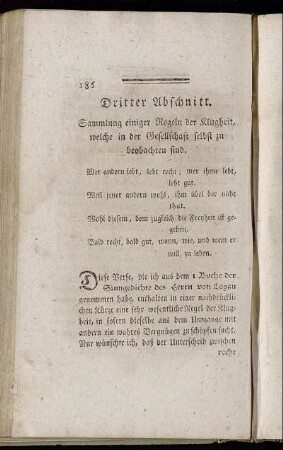 186
Dritter Abschnitt.
Sammlung einiger Regeln der Klugheit,
welche in der Gesellschaft selbst zu
beobachten sind.
Wer andern lebt, lebt recht; wer ihme lebt,
lebt gut.
Weil jener andern wohl, ihm übel der nicht
thut.
Wohl diesem, dem zugleich die Freyheit ist ge-
geben,
Bald recht, bald gut, wann, wie, und wem er
will, zu leben.
Diese Verse, die ich aus dem 1 Buche der
Sinngedichte des Herrn von Logau
genommen habe, enthalten in einer nachdrückli-
chen Kürze eine sehr wesentliche Regel der Klug-
heit, in sofern dieselbe aus dem Umgange mit
andern ein wahres Vergnügen zu schöpfen sucht.
Nur wünschte ich, daß der Unterscheid zwischen
recht